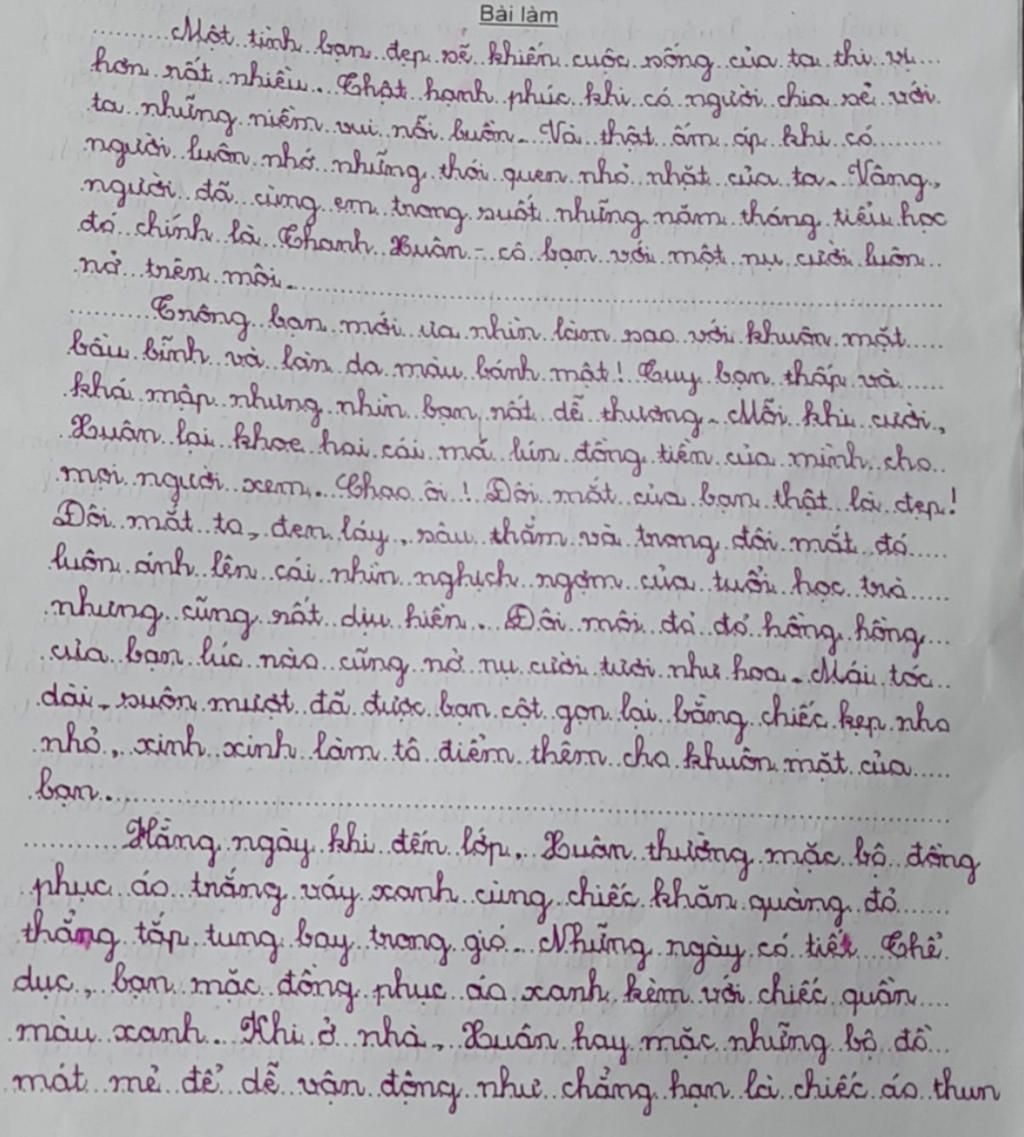 Bài làm
Một tình bạn đẹp sẽ khiến cuộc sống của ta thi vị
hơn rất nhiều. Thật hạnh phúc khi có người chia sẻ với
ta những niềm vui nỗi buồn. Và thật ấm áp khi có
người luôn nhớ những thói quen nhỏ nhặt của ta. Vâng,
người đã cùng em trong suốt những năm tháng tiểu học
đó chính là Thanh Xuân - cô bạn với một nụ cười luôn
nở trên môi.
Trông bạn mới ưa nhìn làm sao với khuôn mặt
bầu bĩnh và làn da màu bánh mật! Tuy bạn thấp và
khá mập nhưng nhìn bạn rất dễ thương. Mỗi khi cười,
Xuân lại khoe hai cái má lún đồng tiền của mình cho
mọi người xem. Chao ôi! Đôi mắt của bạn thật là đẹp!
Đôi mắt to, đen láy, sâu thẳm và trong đôi mắt đó
luôn ánh lên cái nhìn nghịch ngợm của tuổi học trò
nhưng cũng rất dịu hiền. Đôi môi đo đỏ hồng hồng
của bạn lúc nào cũng nở nụ cười tươi như hoa. Mái tóc
dài, suôn mượt đã được bạn cột gọn lại bằng chiếc kẹp nho
nhỏ, xinh xinh làm tô điểm thêm cho khuôn mặt của
bạn.
Hằng ngày khi đến lớp, Xuân thường mặc bộ đồng
phục áo trắng váy xanh cùng chiếc khăn quàng đỏ
thẳng tắp tung bay trong gió. Những ngày có tiết Thể
dục, bạn mặc đồng phục áo xanh kèm với chiếc quần
màu xanh. Khi ở nhà, Xuân hay mặc những bộ đồ
mát mẻ để dễ vận động như chẳng hạn là chiếc áo thun